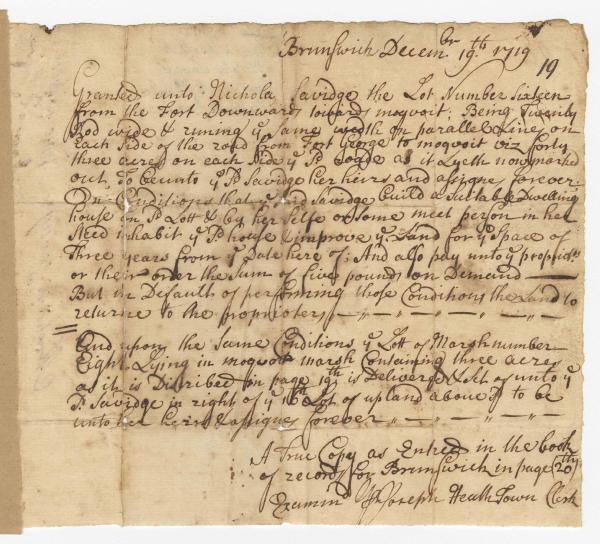 Brunswick Decemb.r 19.th 1719
19
Granted unto Nichola Savidge the Lot Number Sixteen
from the Fort Downwards towards moquoit; Being Twenty
Rod wide & runing ye same width on parallel Lines on
Each Side of the road from Fort George to moquoit viz forty
three acres on each Side ye sd roade as it Lyeth now marked
out, To be unto ye sd Savidge her heirs and assigns forever.
On Conditions that ye said Savidge build a Suitable Dwelling
house on sd Lott & by her Selfe or Some meet person in her
Steed inhabit ye sd house & improve ye Land for ye Space of
Three years from ye Date here of; And also pay unto ye proprietrs
or their order the Sum of five pounds on Demand
But in Default of performing those Conditions the Land to
returne to the proprietors
And upon the Same Conditions ye Lott of Marsh number
Eight Lying in moquoit marsh Containing three acres
as it is Discribed on page 19th is Deliverd & Set of unto ye
sd Savidge in right of ye 16th Lot of upland above sd to be
unto her heirs & assigns forever
A True Copy as Entred in the book
of records for Brunswick in page 20th
Examin pr Joseph Heath Town Clerk